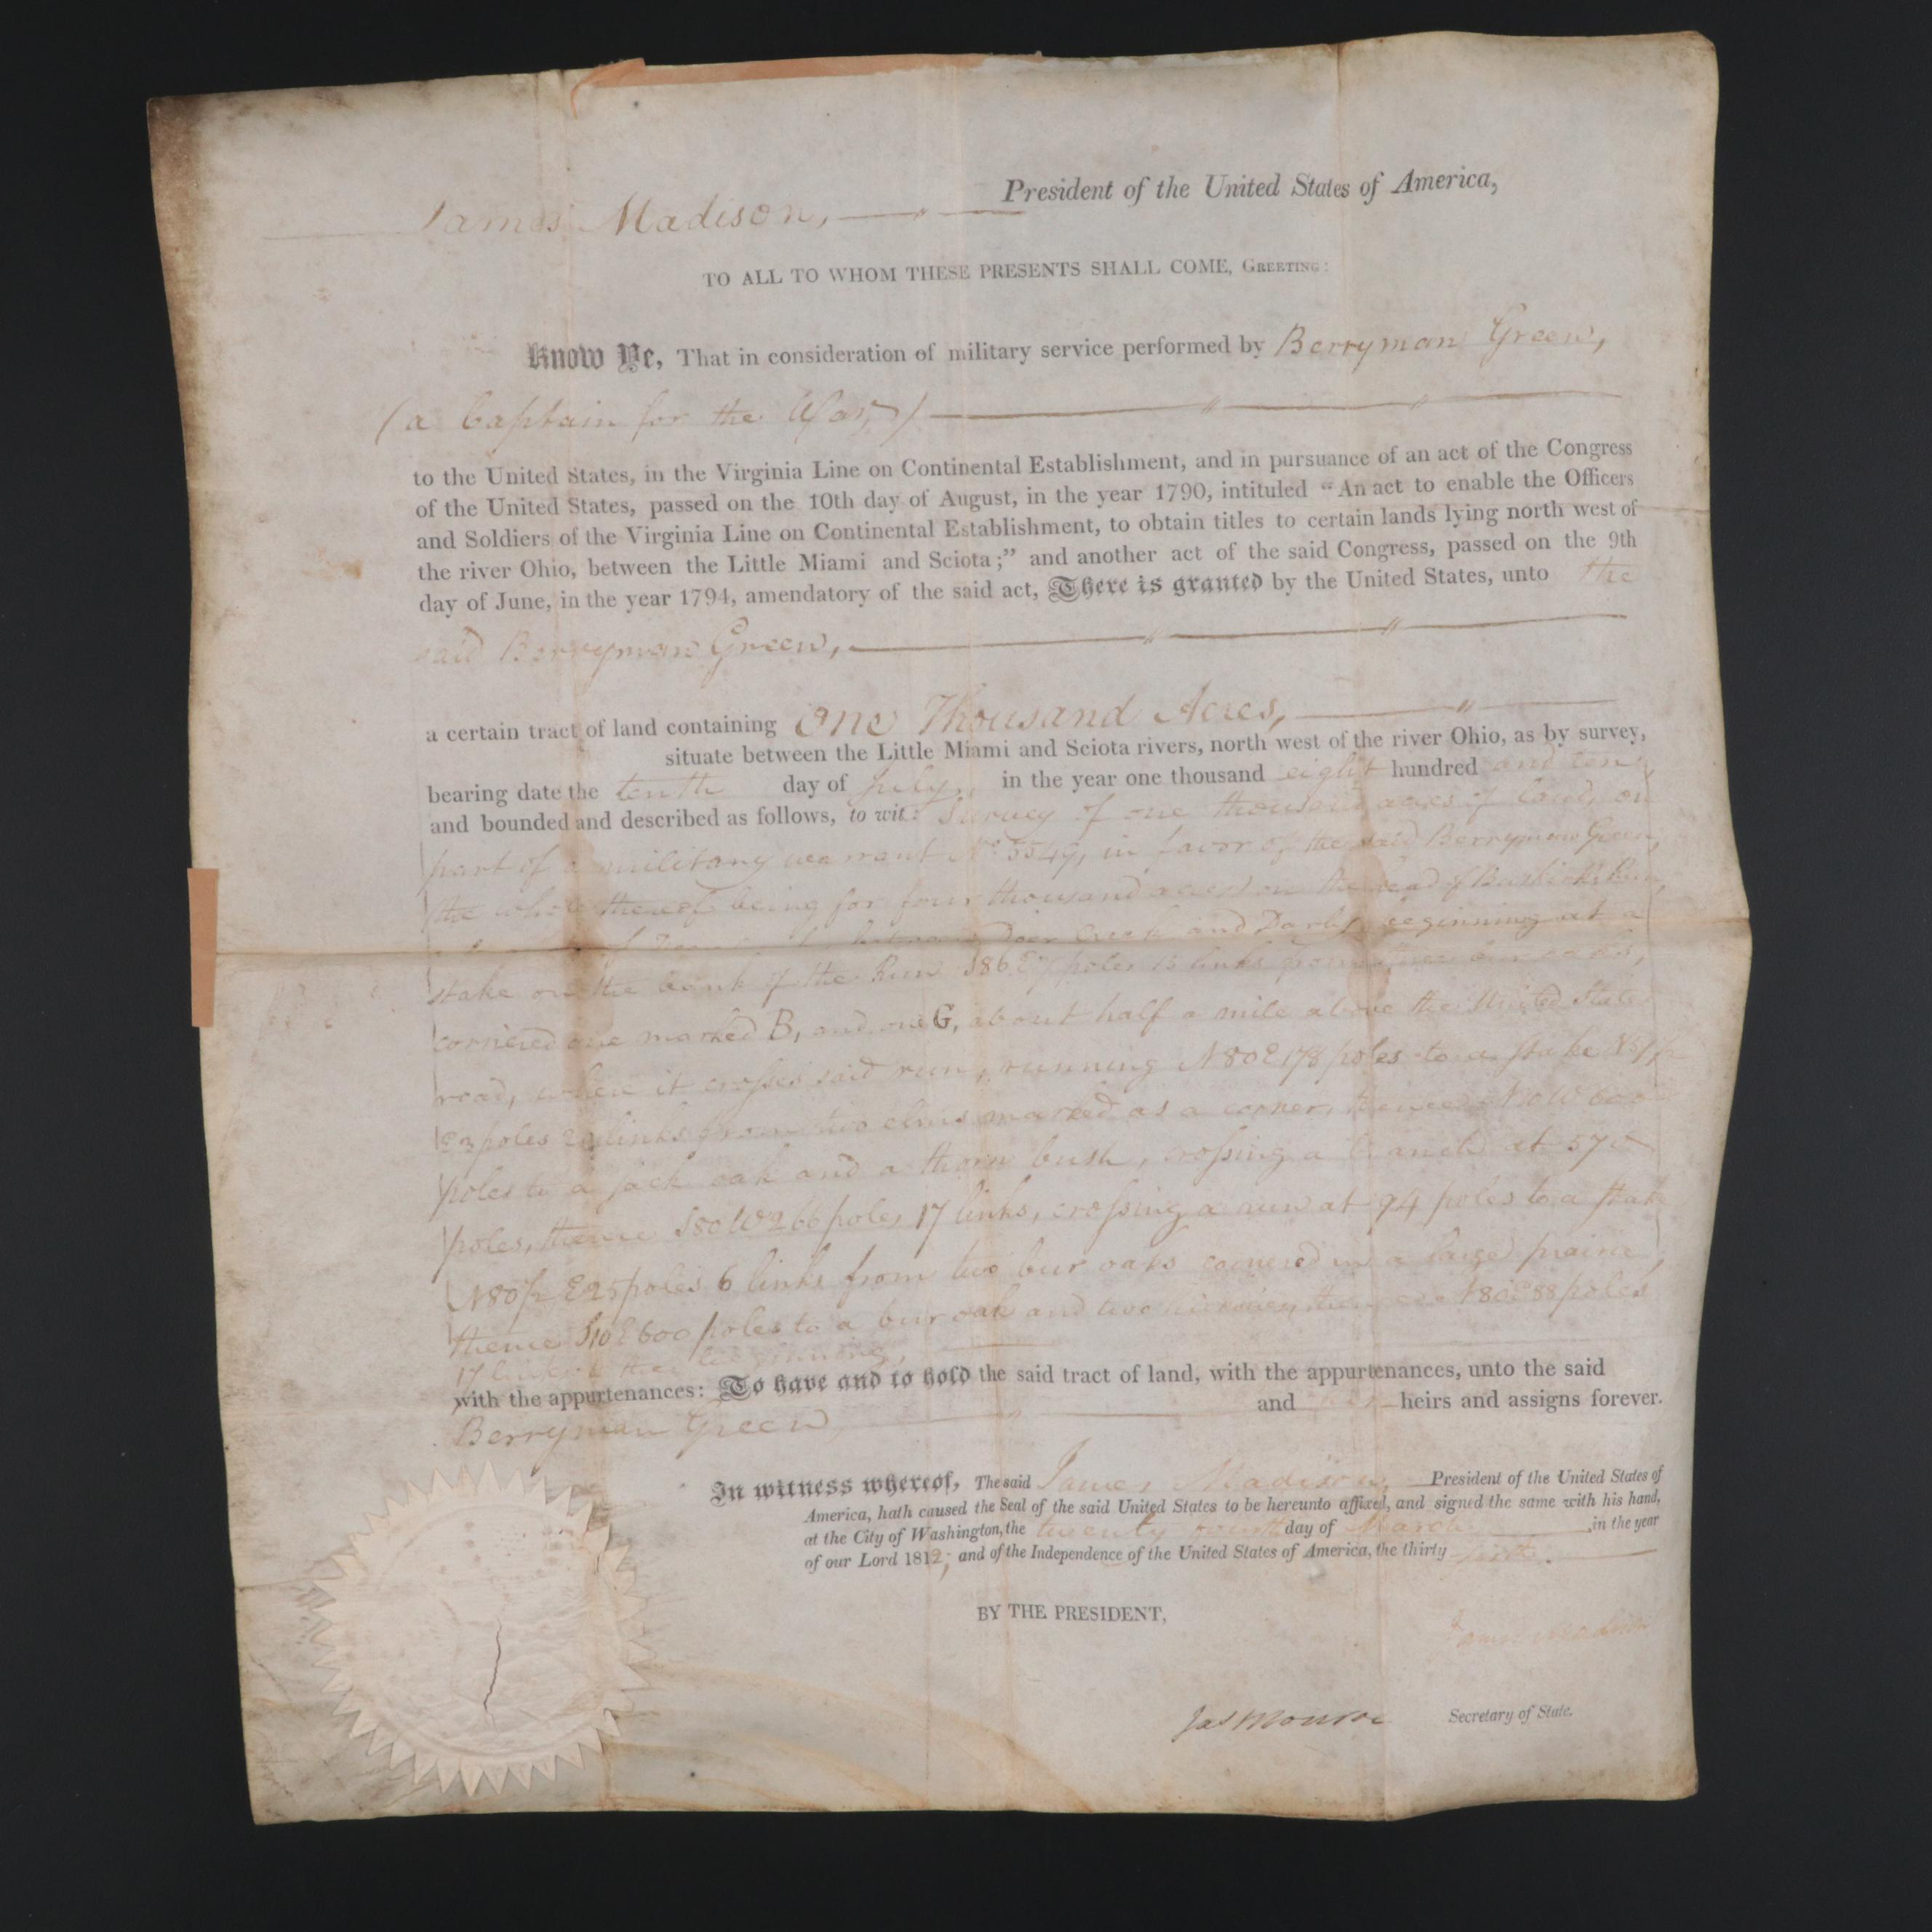 James Madison, President of the United States of America,
TO ALL TO WHOM THESE PRESENTS SHALL COME, GREETING:
Know Ye, That in consideration of military service performed by Berryman Green,
(a Captain for the War,)
to the United States, in the Virginia Line on Continental Establishment, and in pursuance of an act of the Congress
of the United States, passed on the 10th day of August, in the year 1790, intituled “An act to enable the Officers
and Soldiers of the Virginia Line on Continental Establishment, to obtain titles to certain lands lying north west of
the river Ohio, between the Little Miami and Sciota;” and another act of the said Congress, passed on the 9th
day of June, in the year 1794, amendatory of the said act, There is granted by the United States, unto the
said Berryman Green,
a certain tract of land containing One Thousand Acres,
situate between the Little Miami and Sciota rivers, north west of the river Ohio, as by survey,
bearing date the tenth day of July, in the year one thousand eight hundred and ten,
and bounded and described as follows, to wit: Survey of one thousand acres of land, on
part of a military warrant No 5549, in favor of the said Berryman Green,
the whole thereof being for four thousand acres on the head of Run,
Deer Creek and Darby, beginning at a
stake on the bank of the Run S86 E poles 13 links from bur oaks,
cornered one marked B, and one G, about half a mile above the United States
road, where it crosses said run, running N80E 178 poles to a stake
23 poles links from two elms marked as a corner, thence N10W 600
poles to a jack oak and a thorn bush, crossing a branch at 570
poles, thence S80W 266 poles 17 links, crossing a run at 94 poles to a stake
N80½ E25 poles 6 links from two bur oaks cornered in a large prairie,
thence S10E 600 poles to a bur oak and two hickories, thence N80E 88 poles
17 links to the beginning,
with the appurtenances: To have and to hold the said tract of land, with the appurtenances, unto the said
Berryman Green and his heirs and assigns forever.
In witness whereof, The said James Madison, President of the United States of
America, hath caused the Seal of the said United States to be hereunto affixed, and signed the same with his hand,
at the City of Washington, the twenty fourth day of March in the year
of our Lord 1812; and of the Independence of the United States of America, the thirty sixth.
BY THE PRESIDENT,
James Madison
Jas Monroe Secretary of State.